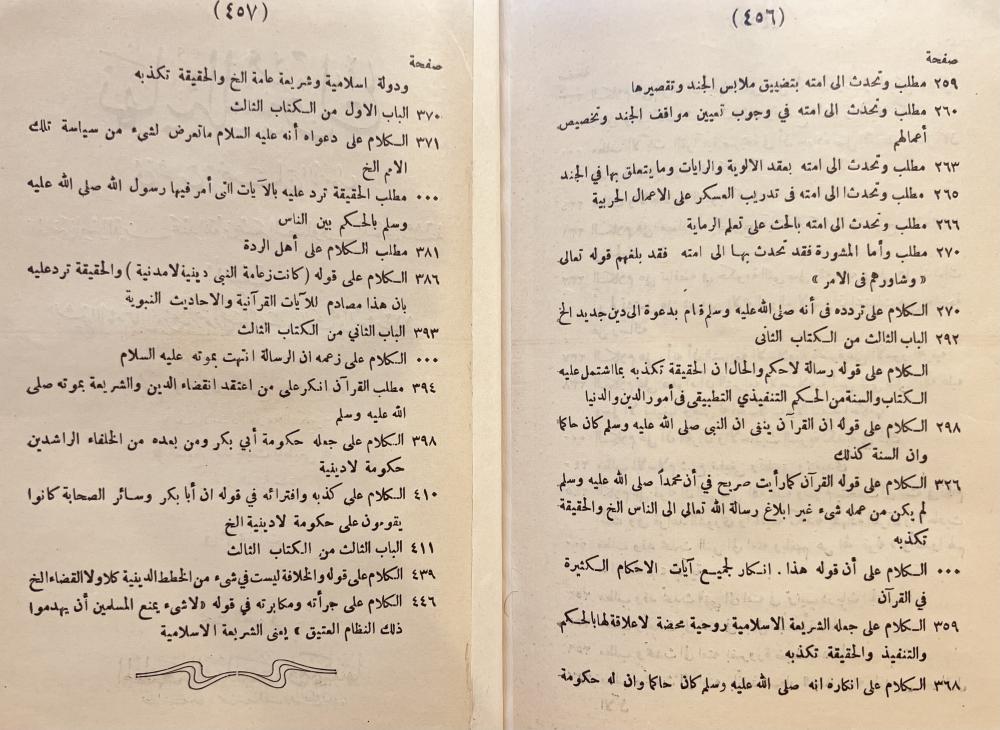 (٤٥٦)
صفحة
٢٥٩ مطلب وتحدث الى امته بتضييق ملابس الجند وتقصيرها
٢٦٠ مطلب وتحدث الى امته في وجوب تعيين مواقف الجند وتخصيص
أعمالهم
٢٦٣ مطلب وتحدث الى امته بعقد الالوية والرايات وما يتعلق بها في الجند
٢٦٥ مطلب وتحدث الى امته فى تدريب العسكر على الاعمال الحربية
٢٦٦ مطلب وتحدث الى امته بالحث على تعلم الرماية
٢٧٠ مطلب وأما المشورة فقد تحدث بها الى امته فقد بلغهم قوله تعالى
«وشاورهم فى الامر»
٢٧٠ الكلام على تردده فى أنه صلى الله عليه وسلم قام بدعوة الى دين جديد الخ
٢٩٢ الباب الثالث من الكتاب الثانى
الكلام على قوله رسالة لاحكم والحال ان الحقيقة تكذبه بما اشتمل عليه
الكتاب والسنة من الحكم التنفيذي التطبيقى فى أمور الدين والدنيا
٢٩٨ الكلام على قوله ان القرآن ينفى ان النبى صلى الله عليه وسلم كان حاكما
وان السنة كذلك
٣٢٦ الكلام على قوله القرآن كما رأيت صريح في أن محمداً صلى الله عليه وسلم
لم يكن من عمله شىء غير ابلاغ رسالة الله تعالى الى الناس الخ والحقيقة
تكذبه
٠٠٠ الكلام على أن قوله هذا . انكار لجميع آيات الاحكام الكثيرة
في القرآن
٣٥٩ الكلام على جعله الشريعة الاسلامية روحية محضة لاعلاقة لها بالحكم
والتنفيذ والحقيقة تكذبه
٣٦٨ الكلام على انكاره انه صلى الله عليه وسلم كان حاكما وان له حكومة
(٤٥٧)
صفحة
ودولة اسلامية وشريعة عامة الخ والحقيقة تكذبه
٣٧٠ الباب الاول من الكتاب الثالث
٣٧١ الكلام على دعواه أنه عليه السلام ماتعرض لشىء من سياسة تلك
الامم الخ
٠٠٠ مطلب الحقيقة ترد عليه بالآيات التى أمر فيها رسول الله صلى الله عليه
وسلم بالحكم بين الناس
٣٨١ مطلب الكلام على أهل الردة
٣٨٦ الكلام على قوله (كانت زعامة النبى دينية لامدنية) والحقيقة ترد عليه
بان هذا مصادم للآيات القرآنية والاحاديث النبوية
٣٩٣ الباب الثاني من الكتاب الثالث
٠٠٠ الكلام على زعمه ان الرسالة انتهت بموته عليه السلام
٣٩٤ مطلب القرآن انكر على من اعتقد انقضاء الدين والشريعة بموته صلى
الله عليه وسلم
٣٩٨ الكلام على جعله حكومة أبي بكر ومن بعده من الخلفاء الراشدين
حكومة لادينية
٤١٠ الكلام على كذبه وافترائه في قوله ان أبا بكر وسائر الصحابة كانوا
يقومون على حكومة لادينية الخ
٤١١ الباب الثالث من الكتاب الثالث
٤٣٩ الكلام على قوله والخلافة ليست في شىء من الخطط الدينية كلا ولا القضاء الخ
٤٤٦ الكلام على جرأته ومكابرته في قوله «لاشىء يمنع المسلمين أن يهدموا
ذلك النظام العتيق» يعنى الشريعة الاسلامية